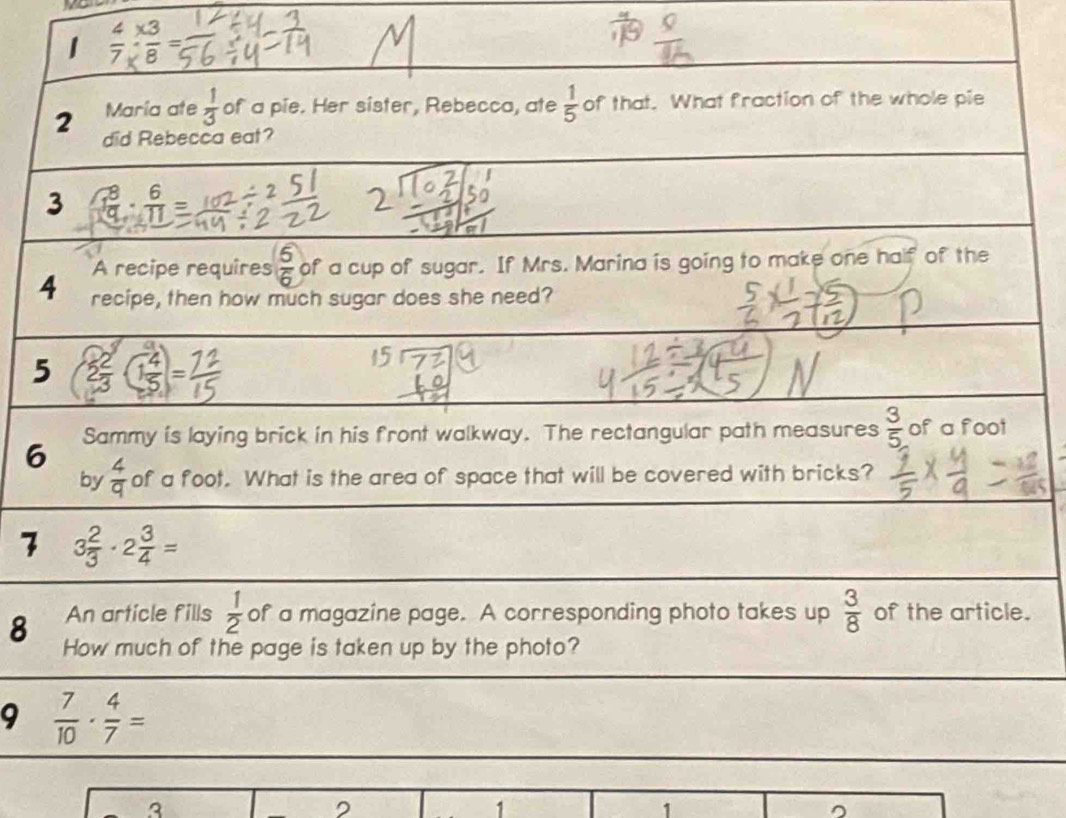 1 4/7 · 3/8 = 12/56 ÷4/÷4 = 3/14 M
2 Maria ate 1/3 of a pie. Her sister, Rebecca, ate 1/5 of that. What fraction of the whole pie
did Rebecca eat?
3 8/9 · 6/11 = 102/44 ÷2/÷2 51/22
4 A recipe requires 5/6 of a cup of sugar. If Mrs. Marina is going to make one half of the
recipe, then how much sugar does she need?
5/6 × 1/2 = 5/12 P
5 2 2/3 · 1 4/5 = 72/15 15 72 4 60 4 12/15 ÷ 4 4/5 N
6 Sammy is laying brick in his front walkway. The rectangular path measures 3/5 of a foot
by 4/9 of a foot. What is the area of space that will be covered with bricks? × 4/9 =
7 3 2/3 · 2 3/4 =
8 An article fills 1/2 of a magazine page. A corresponding photo takes up 3/8 of the article.
How much of the page is taken up by the photo?
9 7/10 · 4/7 =
3 2 1 1 2